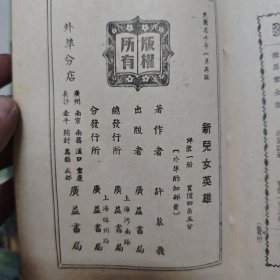 民國三十年一月再版
新兒女英雄
洋裝一冊 實價四角五分
（外埠酌加郵費）
著作者 許慕羲
出版者 廣益書局
總發行所 上海河南路 廣益書局
分發行所 上海福州路 廣益書局
版權所有
外埠分店
廣州 南京 南昌 漢口 重慶
長沙 北平 開封 萬縣 成都